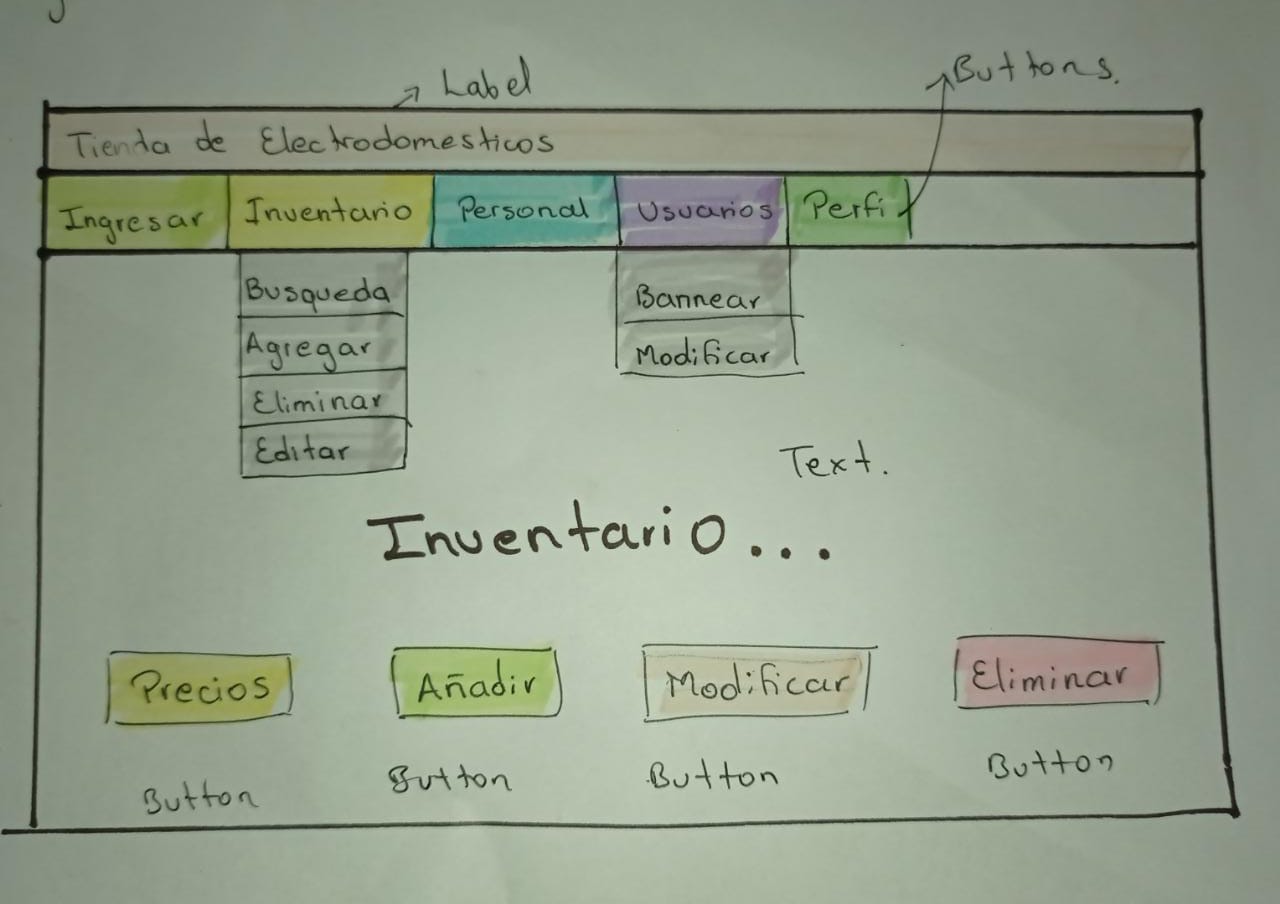 Label
Buttons.
Tienda de Electrodomesticos
Ingresar Inventario Personal Usuarios Perfil
Busqueda
Agregar
Eliminar
Editar
Bannear
Modificar
Text.
Inventario...
Precios Añadir Modificar Eliminar
Button Button Button Button